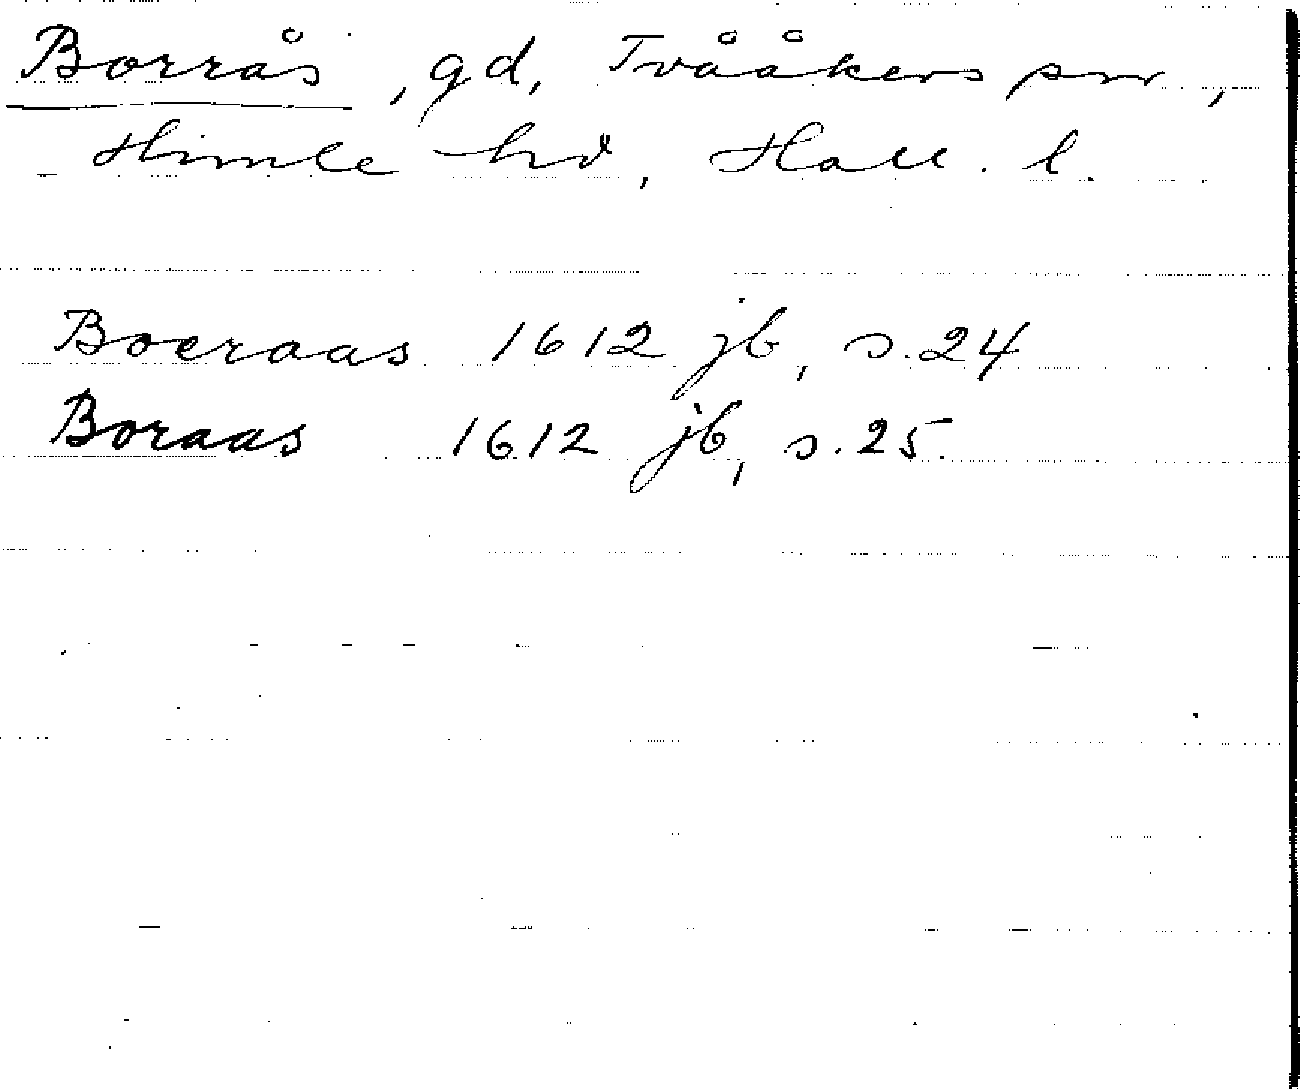 Borrås, gd, Tvååkers snr,
Himle hd, Hall. l.
Boeraas 1612 jb, s. 24
Boraas 1612 jb, s. 25